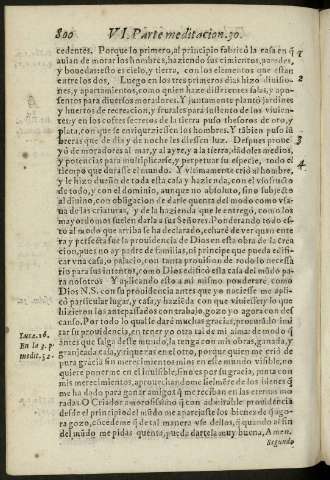 800 VI. Parte meditacion. 30.
cedentes. Porque lo primero, al principio fabricò la casa en q̃
auian de morar los hombres, haziendo sus cimientos, paredes, 1
y bouedas: esto es cielo, y tierra, con los elementos que estan
entre los dos. Luego en los tres primeros dias hizo diuisio- 2
nes, y apartamientos, como quien haze diferentes salas, y apo-
sentos para diuersos moradores. Y juntamente plantò jardines
y huertos de recreacion, y frutales para sustento de los viuien-
tes: y en los cofres secretos de la tierra puso thesoros de oro, y
plata, con que se enriqueziessen los hombres. Y tãbien puso lũ
breras que de dia y de noche les diessen luz. Despues proue- 3
yò de moradores al mar, y al ayre, y a la tierra, dãdoles medios,
y potencias para multiplicarse, y perpetuar su especie, todo el 4
tiempo que durasse el mundo. Y vltimamente criò al hombre,
y le hizo dueño de toda esta casa y hazienda, con el vsufructo
de todo, y con el dominio, aunque no absoluto, sino subjecto
al diuino, con obligacion de darle quenta del modo como vsa-
ua de las criaturas, y de la hazienda que le entregò, como los
mayordomos suelen darla a sus señores. Ponderando todo es-
to al modo que arriba se ha declarado, echarè de ver quan ente
ra y perfecta fue la prouidencia de Dios en esta obra de la crea
cion, pues no ay padre de familias, ni principe que pueda edifi-
car vna casa, o palacio, con tanta prouision de todo lo necessa
rio para sus intentos, como Dios edificò esta casa del mũdo pa-
ra nosotros. Y aplicando esto a mi mismo ponderarè como
Dios N. S. con su prouidencia antes que yo naciesse me apli-
cò particular lugar, y casa, y haziẽda con que viuiesse: y lo que
hizieron los antepassados con trabajo, gozo yo agora con des
canso. Por todo lo qual le darè muchas gracias, procurãdo imi
Luca. 16. tar su prouidencia, en tener yo otra tal de mi alma: de modo q̃
En la 3. p. antes que salga deste mundo, la tenga con mis obras, ganada, y
medit. 52. granjeada casa, y riquezas en el otro, porque quien me criò de
pura gracia sin merecimientos mios en este mundo visible, no
quiere ponerme en el inuisible, sino es por su gracia, junta con
mis merecimientos, aprouechandome biẽ destos bienes q̃
me ha dado para ganar amigos q̃ me reciban en las eternas mo
radas. O Criador amorosissimo q̃ con admirable prouidencia
desde el principio del mũdo me aparejaste los bienes de q̃ ago-
ra gozo, cõcedeme q̃ de tal manera vse dellos, q̃ quando al fin
del mũdo me pidas quenta, pueda dartela muy buena, Amen.
Segundo